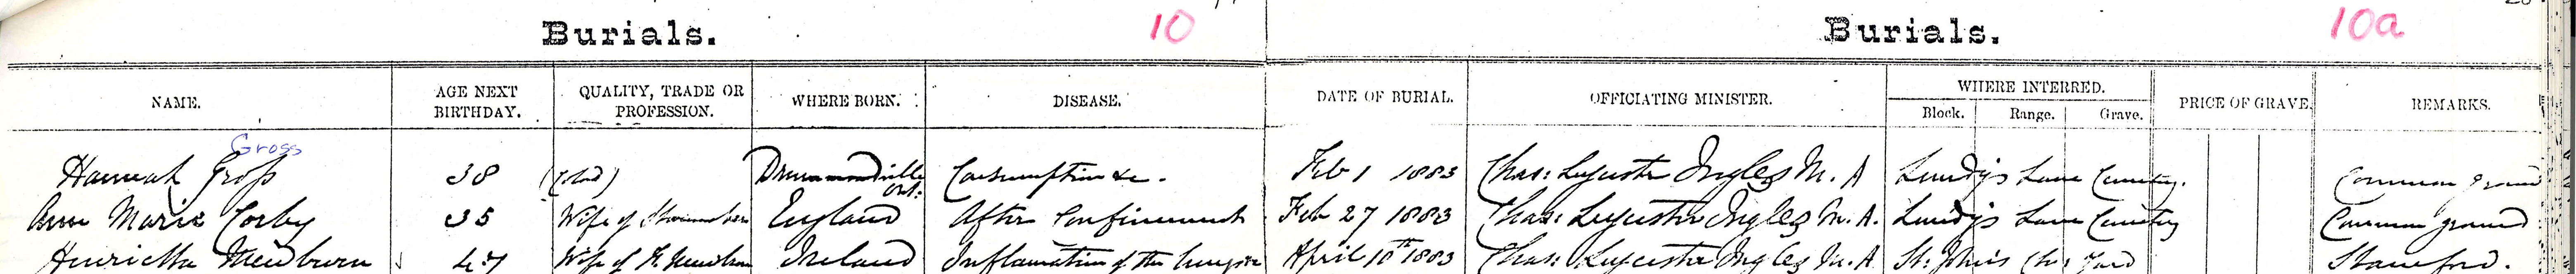 Burials. 10 Burials. 10a
NAME. AGE NEXT BIRTHDAY. QUALITY, TRADE OR PROFESSION. WHERE BORN. DISEASE. DATE OF BURIAL. OFFICIATING MINISTER. WHERE INTERRED. PRICE OF GRAVE. REMARKS.
Block. Range. Grave.
Gross
Hannah Groſs 38 (Cold) Drummondville Ont. Consumption &c. Feb 1 1883 Chas: Leycester Ingles M. A Lundy's Lane Cemetery. Common ground
Ann Marie Corby 35 Wife of Shoemaker England After Confinement Feb 27 1883 Chas: Leycester Ingles M. A. Lundy's Lane Cemetery Common ground
Henrietta Mewburn 47 Wife of Mewburn Ireland Inflamation of the lungs April 10th 1883 Chas: Leycester Ingles M. A St. John's Chr Yard Stamford.